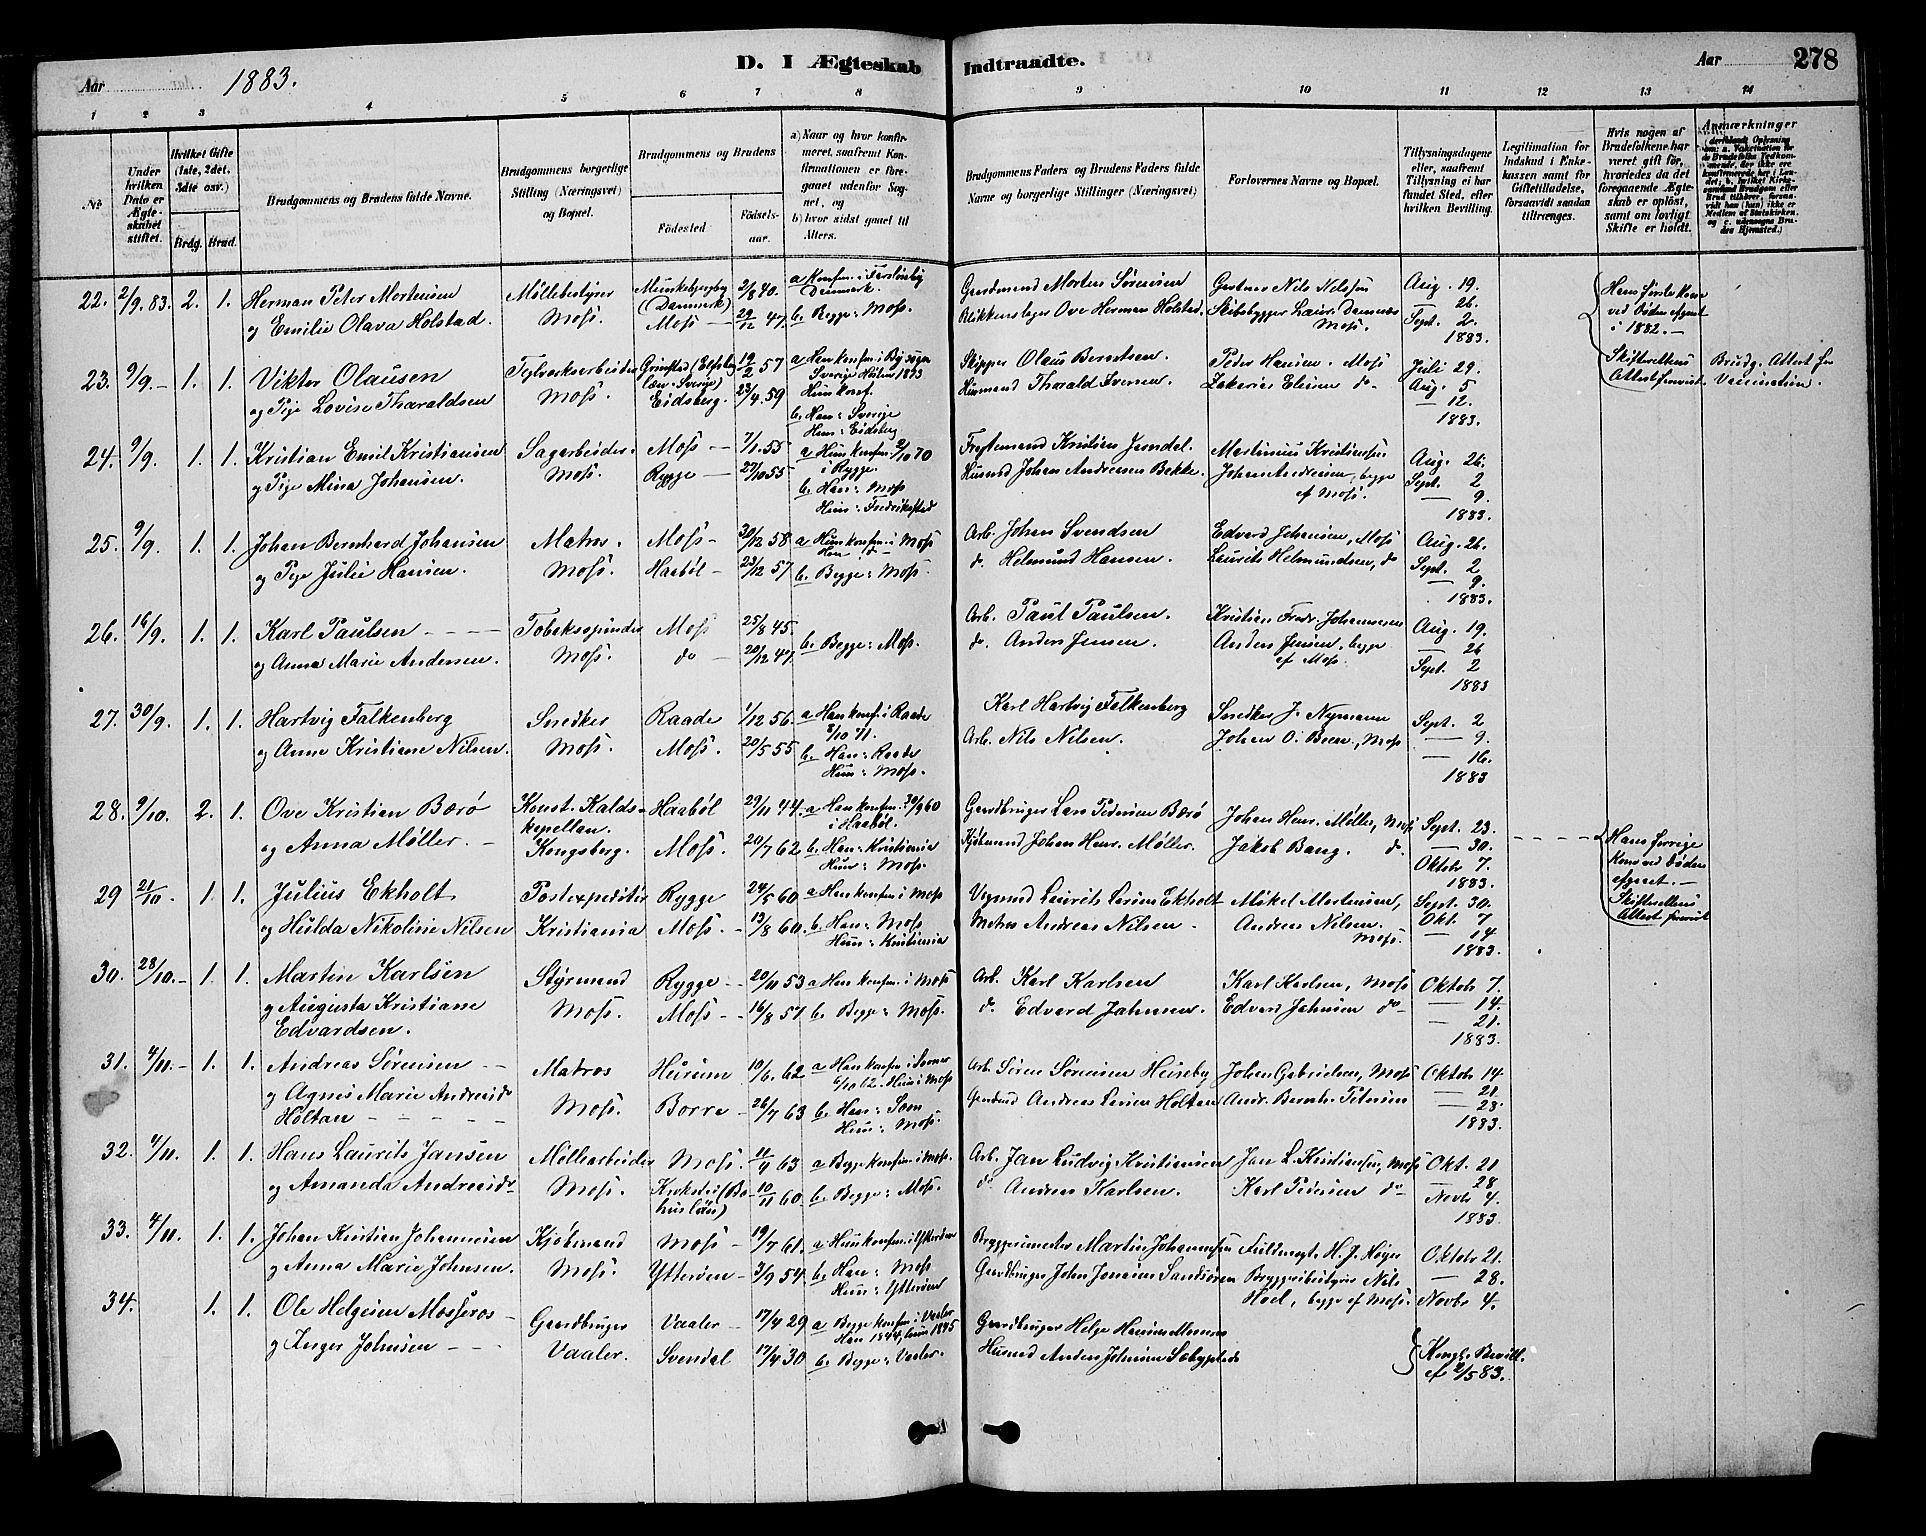 D. I Ægteskab Indtraadte.
Aar 1883.
Aar 278
1 2 3 4 5 6 7 8 9 10 11 12 13 14
No.
Under hvilken Dato er Ægteskabet stiftet.
Hvilket Gifte (1ste, 2det, 3die osv.)
Brdg. Brud.
Brudgommens og Brudens fulde Navne.
Brudgommens borgerlige Stilling (Næringsvei) og Bopæl.
Brudgommens og Brudens
Fødested
Fødselsaar.
a) Naar og hvor konfirmeret, saafremt Konfirmationen er foregaaet udenfor Sognet, og
b) hvor sidst gaaet til Alters.
Brudgommens Faders og Brudens Faders fulde Navne og borgerlige Stillinger (Næringsvei)
Forlovernes Navne og Bopæl.
Tillysningsdagene eller, saafremt Tillysning ei har fundet Sted, efter hvilken Bevilling.
Legitimation for Indskud i Enkekassen samt for Giftetilladelse, forsaavidt saadan tiltrænges.
Hvis nogen af Brudefolkene har været gift før, hvorledes da det foregaaende Ægteskab er opløst, samt om lovligt Skifte er holdt.
Anmærkninger
22. 2/9. 83. 2. 1. Herman Peter Mortensen Møllebestyrer Munkebjergby (Danmark) 2/8 40. a Konfm. i Danmark. Gaardmand Morten Sørensen Gartner Nils Nilssen Aug. 19.
og Emilie Olava Holstad. Moss. Moss 29/12 47. b. Begge: Moss. Blikkenslager Ove Herman Holstad. Skibsbygger Laur. Moss. — 26. Sept. 2. 1883.
Hans første Kone ved Døden afgaaet i 1882. — Skifterettens Attest forevist
23. 9/9. — 1. 1. Viktor Olausen Teglverksarbeider Grinsted (Sverige) 19/2 57 a Han konf. i Sverige Skipper Olaus Berntsen. Peder Hansen. Moss Juli 29. Brudg. Attest for Vaccination.
og Pige Lovise Tharaldsen Moss. Eidsberg. 23/4. 59 Hun konf. b. Han: Sverige Hun: Eidsberg Husmand Tharald Iversen. Zakarias do Aug. 5 — 12. 1883.
24. 9/9. 1. 1. Kristian Emil Kristiansen Sagarbeider. Moss 7/1. 55 a Hun konfm. 2/10 70 i Rygge. Kristian Jerndel. Martinius Kristiansen Aug. 26.
og Pige Mina Johansen. Moss. Rygge 27/10 55 b. Han: Moss Hun: Fredrikstad Husmd Johan Andreasen Bekke. Johan Andersen, begge af Moss. Sept. 2 — 9. 1883.
25. 9/9. 1. 1. Johan Bernhard Johansen Matros. Moss 30/12 58 a Hun konfm. i Moss Arb. Johan Svendsen Edvard Johansen, Moss Aug. 26.
og Pige Julie Hansen. Moss. Haabøl 23/12 57 b. Begge: Moss. do. Helmund Hansen. Laurits Helmundsen, do Sept. 2 — 9. 1883.
26. 16/9. 1. 1. Karl Paulsen Tobaksspinder Moss 25/8 45. Arb. Paul Paulsen. Kristian Fredr. Johannesen Aug. 19.
og Anna Marie Andersen. Moss. do 20/12 47. b. Begge: Moss. do. Anders Jensen. Anders Jensen, begge af Moss. — 26 Sept. 2 1883
27. 30/9. 1. 1. Hartvig Falkenberg Snedker Raade 1/12 56. a Han konf. i Raade 8/10 71. Karl Hartvig Falkenberg Snedker J. Nymann Sept. 2
og Anne Kristiane Nilsen. Moss. Moss. 20/5 55 b. Han: Raade Hun: Moss. Arb. Nils Nilsen. Johan O. Moss — 9. — 16. 1883
28. 9/10. 2. 1. Ove Kristian Bærø Konst. Kaldskapellan. Haabøl 29/11 44. a Han konfm. 30/9 60 i Haabøl. Gaardbruger Lars Pedersen Bærø Johan Henr. Møller, Moss Sept. 23.
og Anna Møller. Kongsberg. Moss. 20/7 62 b. Han: Kristiania Hun: Moss. Kjøbmand Johan Henr. Møller. Jakob Bang. do. — 30. Oktbr 7. 1883.
Hans forrige Kone ved Døden afgaaet. — Skifterettens Attest forevist
29 21/10. 1. 1. Julius Ekholt Postexpeditør Rygge 24/5 60 a Han konfm. i Moss Laurits Ekholt Mikal Mortensen, Sept. 30.
og Hulda Nikoline Nilsen Kristiania Moss. 13/8 60. b. Han: Moss Hun: Kristiania Matros Andreas Nilsen. Andreas Nilsen. Moss. Okt. 7 — 14 1883.
30. 28/10. 1. 1. Martin Karlsen Styrmand Rygge 20/11 53 a Han konfm. i Moss Arb. Karl Karlsen Karl Karlsen, Moss Oktobr 7.
og Augusta Kristiane Edvardsen. Moss. Moss 16/8 57 b. Begge: Moss. do. Edvard Edvard do — 14. — 21. 1883.
31. 4/11. 1. 1. Andreas Sørensen Matros Hurum 10/6. 62 a Han konfm. i Hun i Moss Arb. Søren Sørensen Huseby Johan Gabrielsen, Moss Oktobr 14
og Agnes Marie Andreasdr Holtan Moss. Borre 26/7 63 b. Han: Soon Hun: Moss. Andreas Holtan Andr. Bernh. Petersen — 21 — 28. 1883.
32. 4/11. 1. 1. Hans Laurits Jansen Møllearbeider Moss. 11/4 63 a Begge konfm. i Moss. Arb. Jan Ludvig Kristiansen Jan L. Kristiansen, Moss Okt. 21
og Amanda Andreasdr Moss. Krokstad (Bohuslän) 10/11 60. b. Begge: Moss. do Andreas Karlsen. Karl Pedersen do — 28 Novbr 4. 1883.
33. 4/11. 1. 1. Johan Kristian Johannesen Kjøbmand Moss 19/7 61. a Hun konfm. i Ytterøen Bryggerimester Martin Johannesen Fuldmægt. H. J. Oktobr 21.
og Anna Marie Johnsen. Moss. Ytterøen 3/9 54. b. Han: Moss Hun: Ytterøen Gaardbruger John Jonsen Bryggeribestyrer Nils Hoel, begge af Moss. — 28. Novbr 4.
34. 1. 1. Ole Helgesen Mosseros Gaardbruger Vaaler 17/4 29 a Begge konfm. i Vaaler Han 1844, hun 1845 Gaardbruger Helge Hansen
og Inger Johnsen Vaaler. Svendal 17/4 30 b. Begge: Vaaler. Husmd Anders Johnsen
Kongl. Bevill. af 2/5 83.